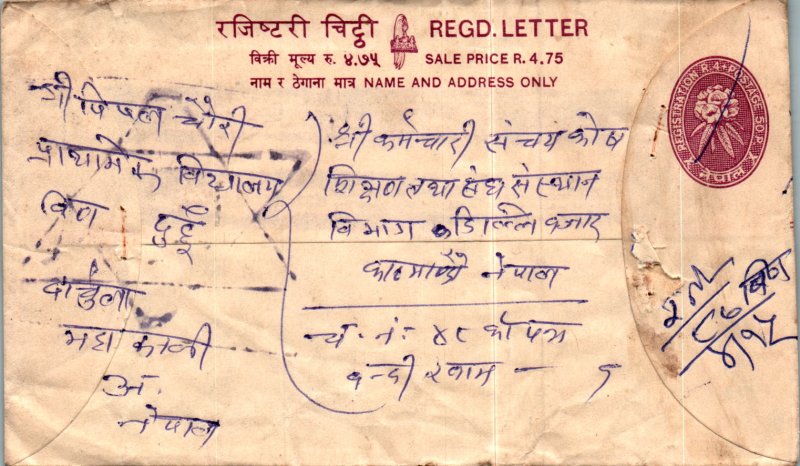 रजिष्टरी चिट्ठी REGD. LETTER
बिक्री मूल्य रु. ४.७५ SALE PRICE R. 4.75
नाम र ठेगाना मात्र NAME AND ADDRESS ONLY
REGISTRATION R.4+POSTAGE 50 P.
नेपाल
श्री पिपल चौरी
प्राथामिक विद्यालय
विण दुहूँ
दार्चुला
महाकाली
अं.
नेपाल
श्री कर्मचारी संचय कोष
शिक्षण तथा संघ संस्थान
विभाग डिल्लि बजार
काठमाण्डौ नेपाल
च. नं. ४८ को पत्र
वन्दी खाम - १